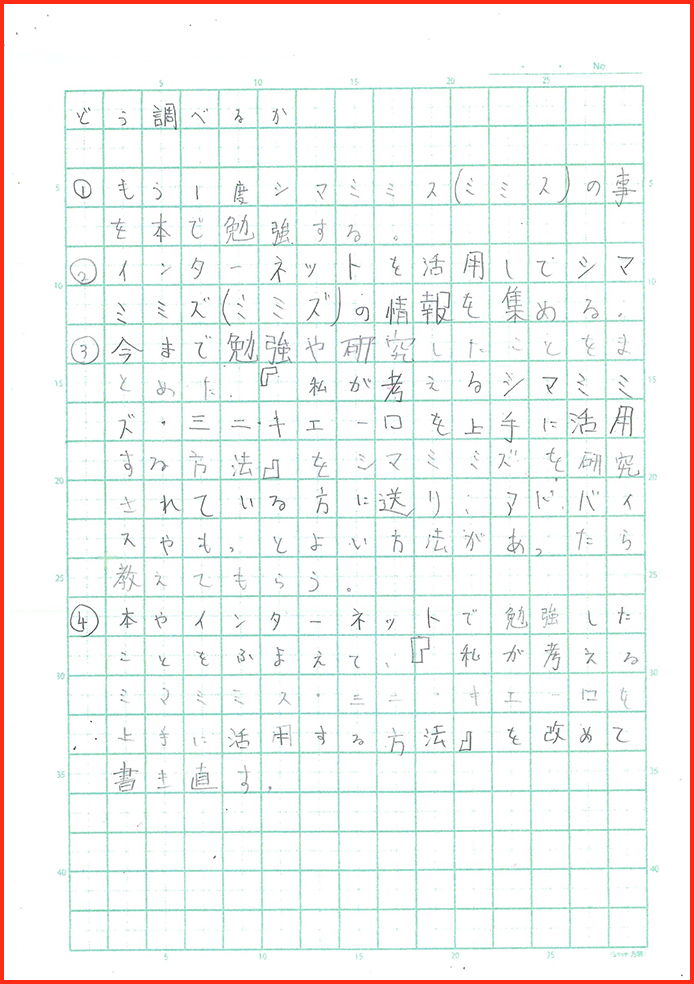 No
5 10 15 20 25
どう調べるか
5 ①もう1度シマミミズ(ミミズ)の事 5
を本で勉強する。
②インターネットを活用してシマ
10 ミミズ(ミミズ)の情報を集める。 10
③今まで勉強や研究したことをま
15 とめた.『私が考えるシマミミ 15
ズ・ミニ・キエーロを上手に活用
する方法』をシマミミズを研究
20 されている方に送り、アドバイ 20
スやもっとよい方法があったら
25 教えてもらう。 25
④本やインターネットで勉強した
ことをふまえて、『私が考える
30 ミマミミス・ミニ・キエーロを 30
上手に活用する方法』を改めて
35 書き直す。 35
40 40
5 10 15 20 25